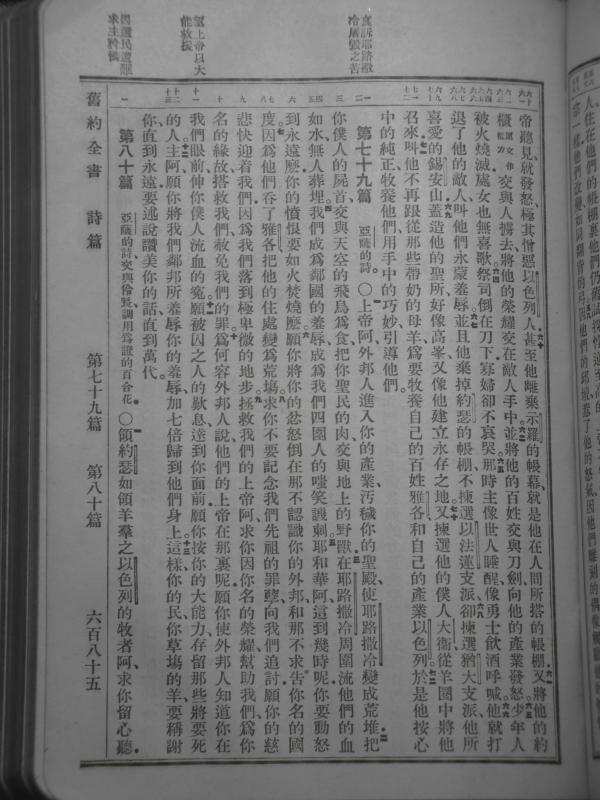 哀訴耶路撒
冷居毀之苦
望上帝以大
能救援
因選民遭難
求主眷懷
帝聽見就發怒極其憎惡以色列人甚至他離棄示羅的帳幕就是他在人間所搭的帳棚又將他的約
櫃 原文作能力 交與人擄去將他的榮耀交在敵人手中並將他的百姓交與刀劍向他的產業發怒少年人
被火燒滅處女也無喜歌祭司倒在刀下寡婦卻不哀哭那時主像世人睡醒像勇士飲酒呼喊他就打
退了他的敵人叫他們永蒙羞辱並且他棄掉約瑟的帳棚不揀選以法蓮支派卻揀選猶大支派他所
喜愛的錫安山蓋造他的聖所好像高峯又像他建立永存之地又揀選他的僕人大衛從羊圈中將他
召來叫他不再跟從那些帶奶的母羊爲要牧養自己的百姓雅各和自己的產業以色列於是他按心
中的純正牧養他們用手中的巧妙引導他們
第七十九篇 亞薩的詩 〇上帝阿外邦人進入你的產業汚穢你的聖殿使耶路撒冷變成荒堆把
你僕人的屍首交與天空的飛鳥爲食把你聖民的肉交與地上的野獸在耶路撒冷周圍流他們的血
如水無人葬埋我們成爲鄰國的羞辱成爲我們四圍人的嗤笑譏刺耶和華阿這到幾時呢你要動怒
到永遠麽你的憤恨要如火焚燒麽願你將你的忿怒倒在那不認識你的外邦和那不求告你名的國
度因爲他們吞了雅各把他的住處變爲荒塲求你不要記念我們先祖的罪孽向我們追討願你的慈
悲快迎着我們因爲我們落到極卑微的地步拯救我們的上帝阿求你因你名的榮耀幫助我們爲你
名的緣故搭救我們赦免我們的罪爲何容外邦人說他們的上帝在那裏呢願你使外邦人知道你在
我們眼前伸你僕人流血的寃願被囚之人的歎息達到你面前願你按你的大能力存留那些將要死
的人主阿願你將我們鄰邦所羞辱你的羞辱加七倍歸到他們身上這樣你的民你草塲的羊要稱謝
你直到永遠要述說讚美你的話直到萬代
第八十篇 亞薩的詩交與伶長調用爲證的百合花 〇領約瑟如領羊羣之以色列的牧者阿求你留心聽
舊約全書 詩篇 第七十九篇 第八十篇 六百八十五